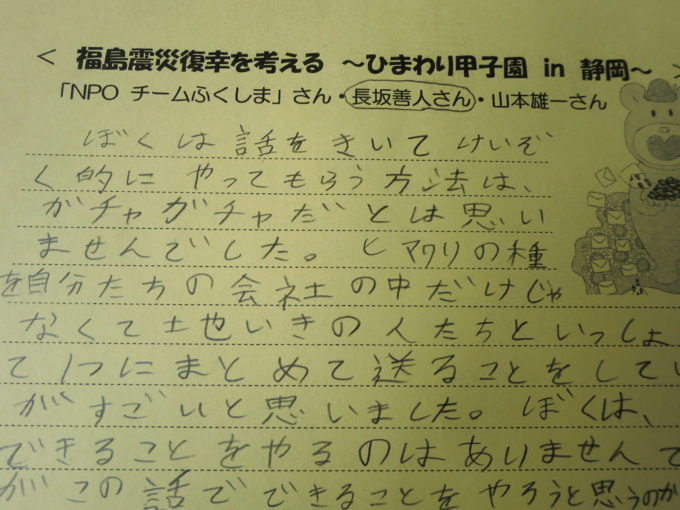 < 福島震災復幸を考える ～ひまわり甲子園 in 静岡～ >
「NPO チームふくしま」さん・長坂善人さん・山本雄一さん
ぼくは話をきいてけいぞ
く的にやってもらう方法は、
ガチャガチャだとは思い
ませんでした。ヒマワリの種
を自分たちの会社の中だけじゃ
なくて土也いきの人たちといっしょ
て1つにまとめて送ることをしてい
がすごいと思いました。ぼくは、
できることをやるのはありませんで
がこの話でできることをやろうと思うのか